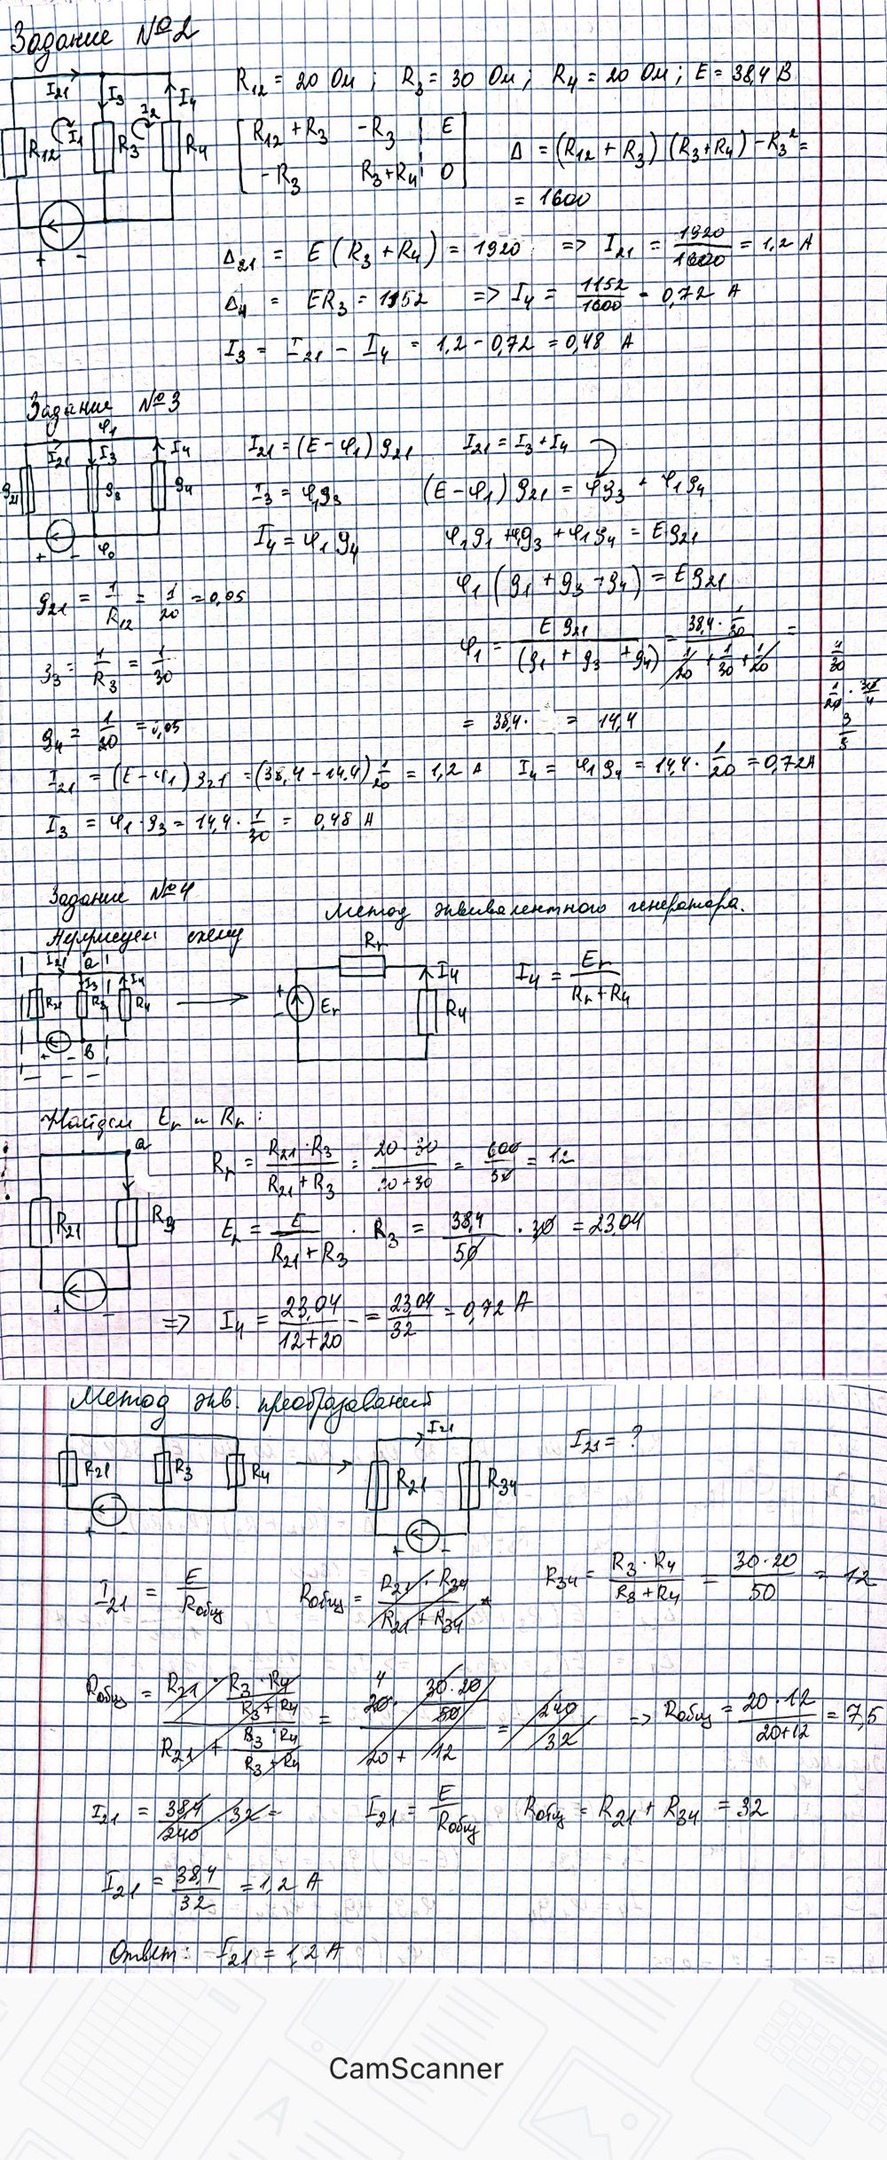 Задание №2
R12 = 20 Ом ; R3 = 30 Ом ; R4 = 20 Ом ; E = 38,4 В
I21 I3 I4
R12 I1 R3 I2 R4
+ -
R12 + R3 -R3 | E
-R3 R3+R4 | 0
Δ = (R12 + R3) (R3+R4) - R3² =
= 1600
Δ21 = E (R3 + R4) = 1920 => I21 = 1920/1600 = 1,2 А
Δ4 = ER3 = 1152 => I4 = 1152/1600 = 0,72 А
I3 = I21 - I4 = 1,2 - 0,72 = 0,48 А
Задание №3
φ1
I21 I3 I4
g21 g3 g4
+ - φ0
I21 = (E - φ1) g21 I21 = I3 + I4
I3 = φ1g3 (E - φ1) g21 = φg3 + φ1g4
I4 = φ1 g4 φ1g1 + φg3 + φ1g4 = Eg21
φ1 (g1 + g3 + g4) = Eg21
g21 = 1/R12 = 1/20 = 0,05
φ1 = E g21/(g1 + g3 + g4) = 38,4 · 1/30/1/20 + 1/30 + 1/20 =
g3 = 1/R3 = 1/30
g4 = 1/20 = 0,05
= 38,4 · = 14,4
I21 = (E - φ1) g21 = (38,4 - 14,4) 1/20 = 1,2 А I4 = φ1 g4 = 14,4 · 1/20 = 0,72А
I3 = φ1 · g3 = 14,4 · 1/30 = 0,48 А
Задание №4
Метод эквивалентного генератора.
схему
I21 a I3 I4
R21 R3 R4
+ - в
Rг
+ - Eг I4 R4
I4 = Eг/Rг + R4
Найдем Eг и Rг :
a
R21 R3
+ -
Rг = R21 · R3/R21 + R3 = 20 · 30/20 + 30 = 600/50 = 12
Eг = E/R21 + R3 · R3 = 38,4/50 · 30 = 23,04
=> I4 = 23,04/12 + 20 = 23,04/32 = 0,72 А
Метод экв. преобразований
R21 R3 R4
+ -
I21
R21 R34
+ -
I21 = ?
I21 = E/Rобщ Rобщ = R21 · R34/R21 + R34 R34 = R3 · R4/R3 + R4 = 30 · 20/50 = 12
Rобщ = R21 · R3 · R4/R3 + R4/R21 + R3 · R4/R3 + R4 = 20 · 30 · 20/50/20 + 12 = 240/32 => Rобщ = 20 · 12/20+12 = 7,5
I21 = 38,4/240 · 32 = I21 = E/Rобщ Rобщ = R21 + R34 = 32
I21 = 38,4/32 = 1,2 А
Ответ: I21 = 1,2 А
CamScanner